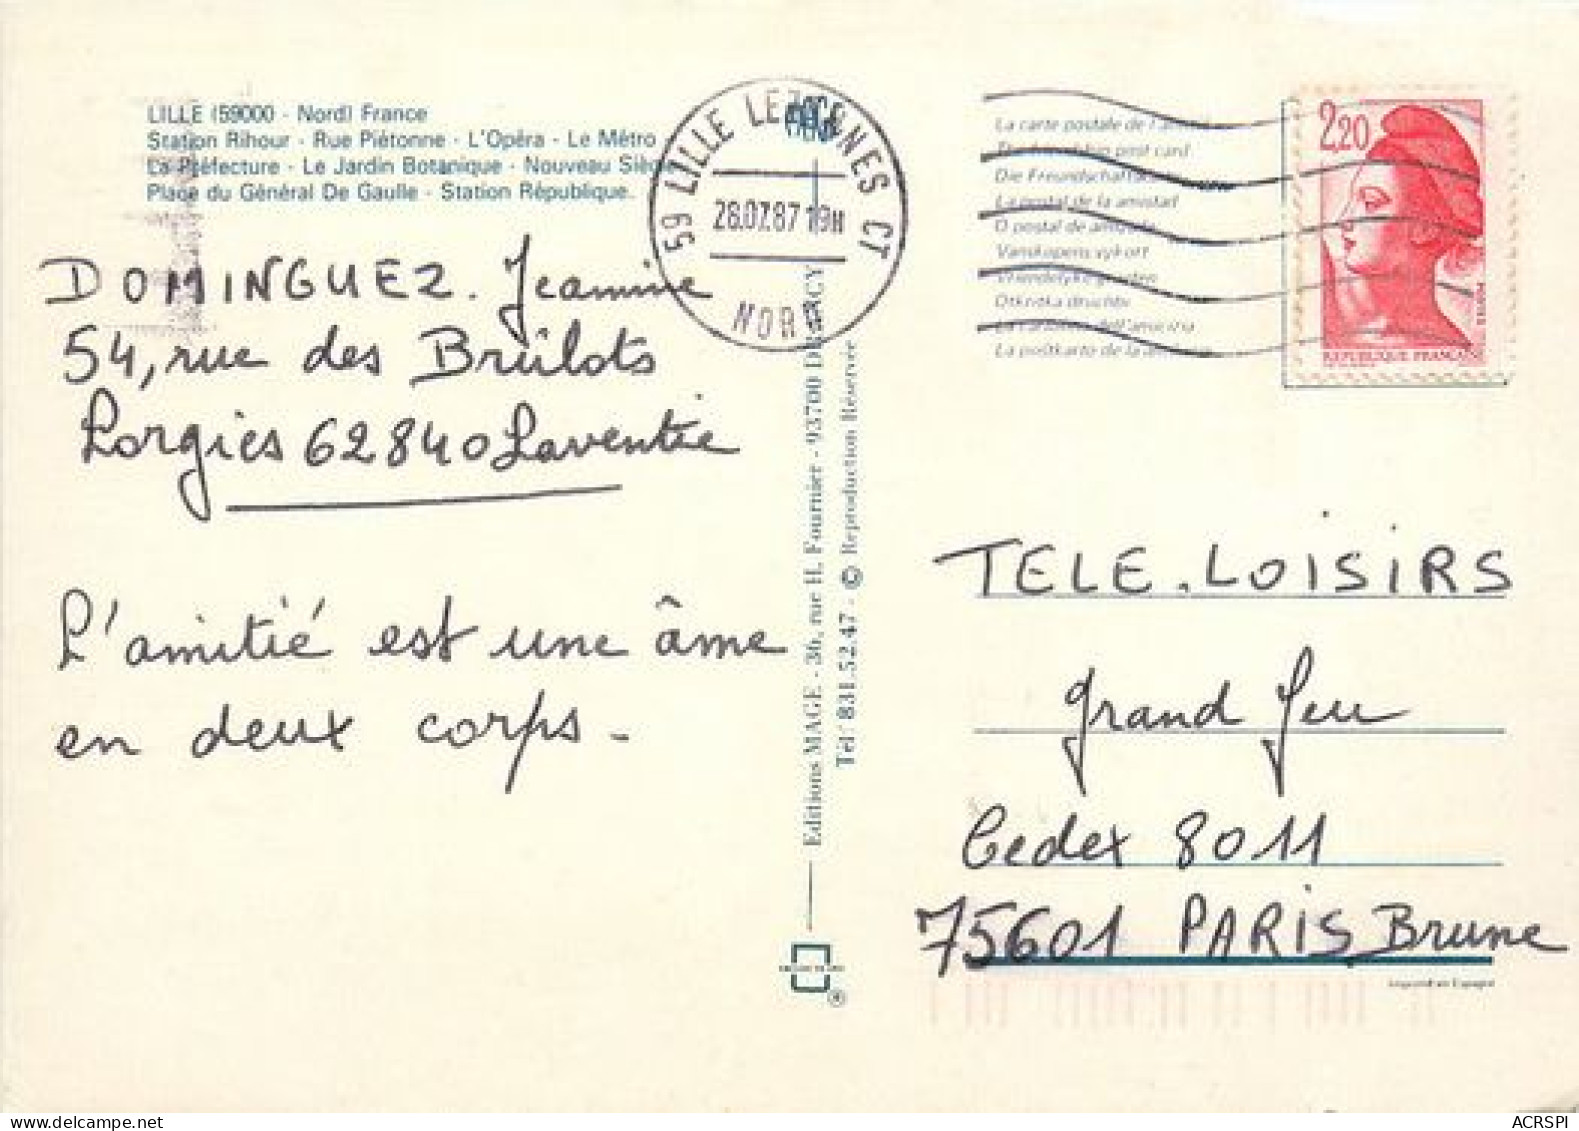 LILLE (59000 - Nord) France
Station Rihour - Rue Piétonne - L'Opéra - Le Métro
La Préfecture - Le Jardin Botanique - Nouveau Siège
Place du Général De Gaulle - Station République.
DOMINGUEZ. Jeannine
54, rue des Brûlots
Lorgies 62840 Laventie
L'amitié est une âme
en deux corps.
59 LILLE LEZENNES CT
28.07.87 19H
NORD
Editions MAGE - 36, rue H. Fournier - 93700 DRANCY
Tél : 831.52.47 - © Reproduction Réservée
La carte postale de l'amitié
The friendship post card
Die Freundschaftskarte
La postal de la amistad
O postal de amizade
Vanskapens vykort
Vriendelijke groeten
Otkritka druchbi
La cartolina dell'amicizia
La poŝtkarto de la amikeco
2,20
REPUBLIQUE FRANÇAISE
TELE-LOISIRS
Grand Jeu
Cedex 8011
75601 PARIS Brune
Imprimé en Espagne
®
ACRSPI